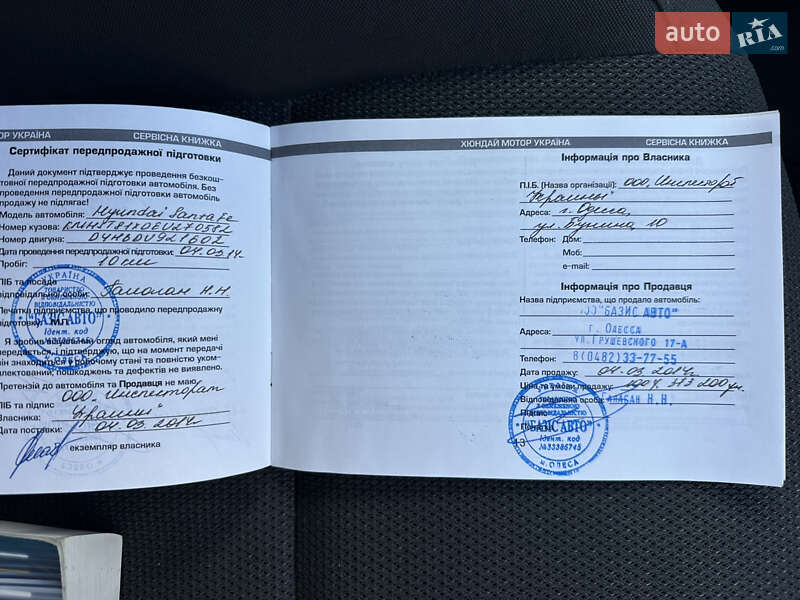 auto RIA.com
ОР УКРАЇНА СЕРВІСНА КНИЖКА
Сертифікат передпродажної підготовки
Даний документ підтверджує проведення безкош-
товної передпродажної підготовки автомобіля. Без
проведення передпродажної підготовки автомобіль
продажу не підлягає!
Модель автомобіля: Hyundai Santa Fe
Номер кузова: KMHST81XDEU270582
Номер двигуна: D4HBDU921602
Дата проведення передпродажної підготовки: 04.03.14.
Пробіг: 10 км
ПІБ та посада
відповідальної особи: Н.Н.
Печатки підприємства, що проводило передпродажну
підготовку, МП
Я зробив візуальний огляд автомобіля, який мені
передається, і підтверджую, що на момент передачі
він знаходиться у робочому стані та повністю уком-
плектований; пошкоджень та дефектів не виявлено.
Претензій до автомобіля та Продавця не маю.
ООО. Инспекторат
ПІБ та підпис
Власника: Украины"
Дата поставки: 04.03.2014г
екземпляр власника
УКРАЇНА
ТОВАРИСТВО
З ОБМЕЖЕНОЮ
ВІДПОВІДАЛЬНІСТЮ
"БАЗИС АВТО"
Ідент. код
№33386745
м. ОДЕСА
ХЮНДАЙ МОТОР УКРАЇНА СЕРВІСНА КНИЖКА
Інформація про Власника
П.І.Б. (Назва організації): ООО, Инспекторат
Украины"
Адреса: г. Одесса,
ул. Бунина, 10
Телефон: Дом:
Моб:
e-mail:
Інформація про Продавця
Назва підприємства, що продало автомобіль:
ООО "БАЗИС АВТО"
Адреса: г. Одесса
ул. Грушевского 17-А
Телефон: 8(0482)33-77-55
Дата продажу: 04.03.2014г
Ціна та умови продажу: 100% 373 200 грн.
Відповідальна особа: Н.Н.
Підпис
З ОБМЕЖЕНОЮ
ВІДПОВІДАЛЬНІСТЮ
"БАЗИС АВТО"
Ідент. код
№33386745
м. ОДЕСА
13